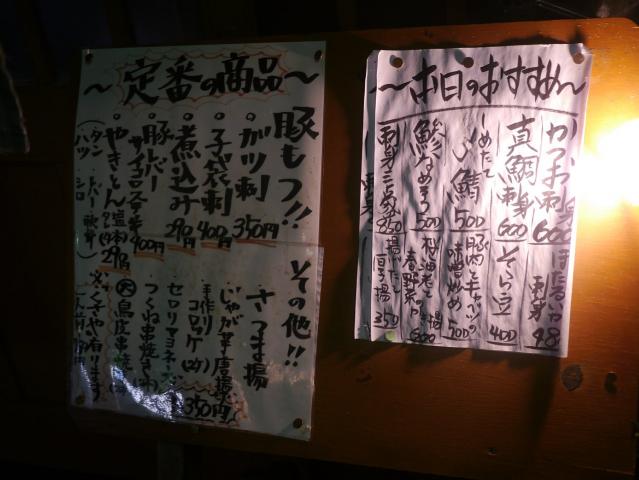 〜定番の商品〜
豚もつ!!
ガツ刺 350円
子袋刺 400円
煮込み 290円
豚レバー
サイコロステーキ 400円
やきとん
290円
タン レバー 軟骨
ハツ シロ
その他!!
さつま揚
じゃが芋唐揚
手作り
コロッケ(2ケ)
セロリマヨネーズ
つくね串焼き
鳥皮串焼
350円
※くさや有ります
〜本日のおすすめ〜
かつお刺身 600
真鯛刺身 600
しめたて
〆鯖 500
鯵なめろう 500
刺身三点盛 850
ほたるいか
刺身 48
そら豆 400
豚肉とキャベツの
味噌炒め 500
桜海老と
春野菜のかき揚 600
揚げたて
厚揚 350